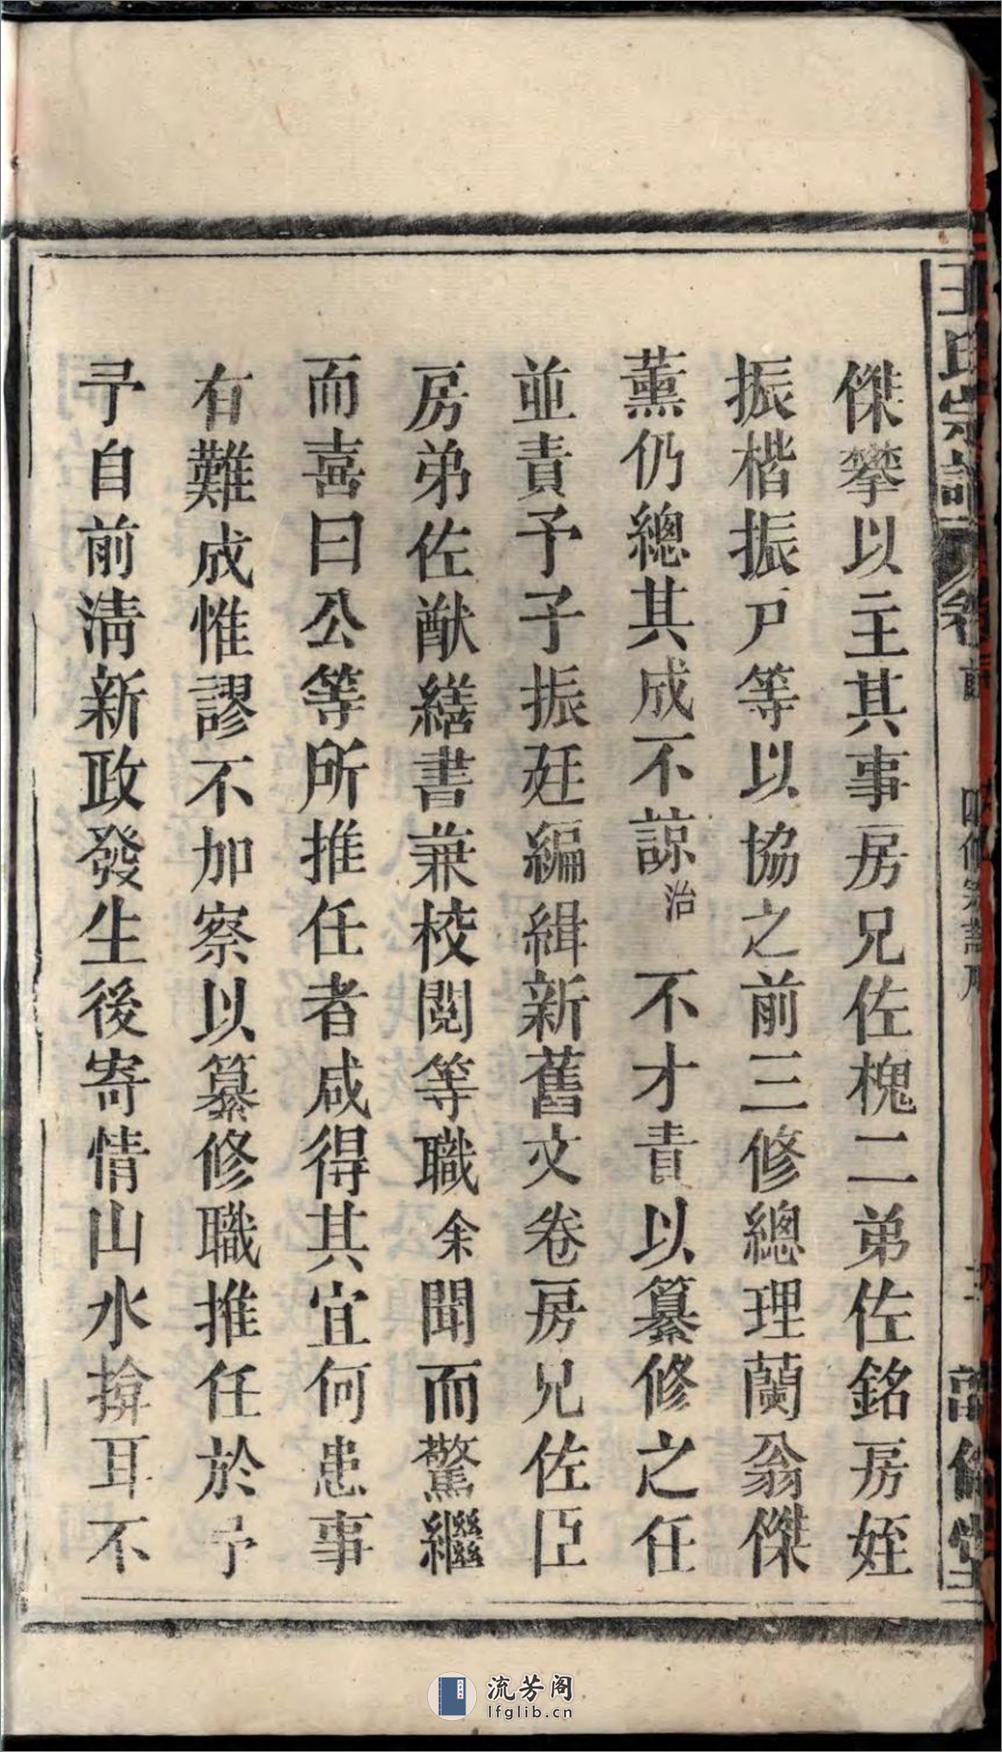 王氏宗譜 卷首 四修宗譜序 三
傑攀以主其事房兄佐槐二弟佐銘房姪
振楷振戶等以協之前三修總理蘭翁傑
薰仍總其成不諒治不才責以纂修之任
並責予子振廷編緝新舊文卷房兄佐臣
房弟佐猷繕書兼校閱等職余聞而驚繼
而喜曰公等所推任者咸得其宜何患事
有難成惟謬不加察以纂修職推任於予
予自前清新政發生後寄情山水揜耳不
流芳阁
lfglib.cn